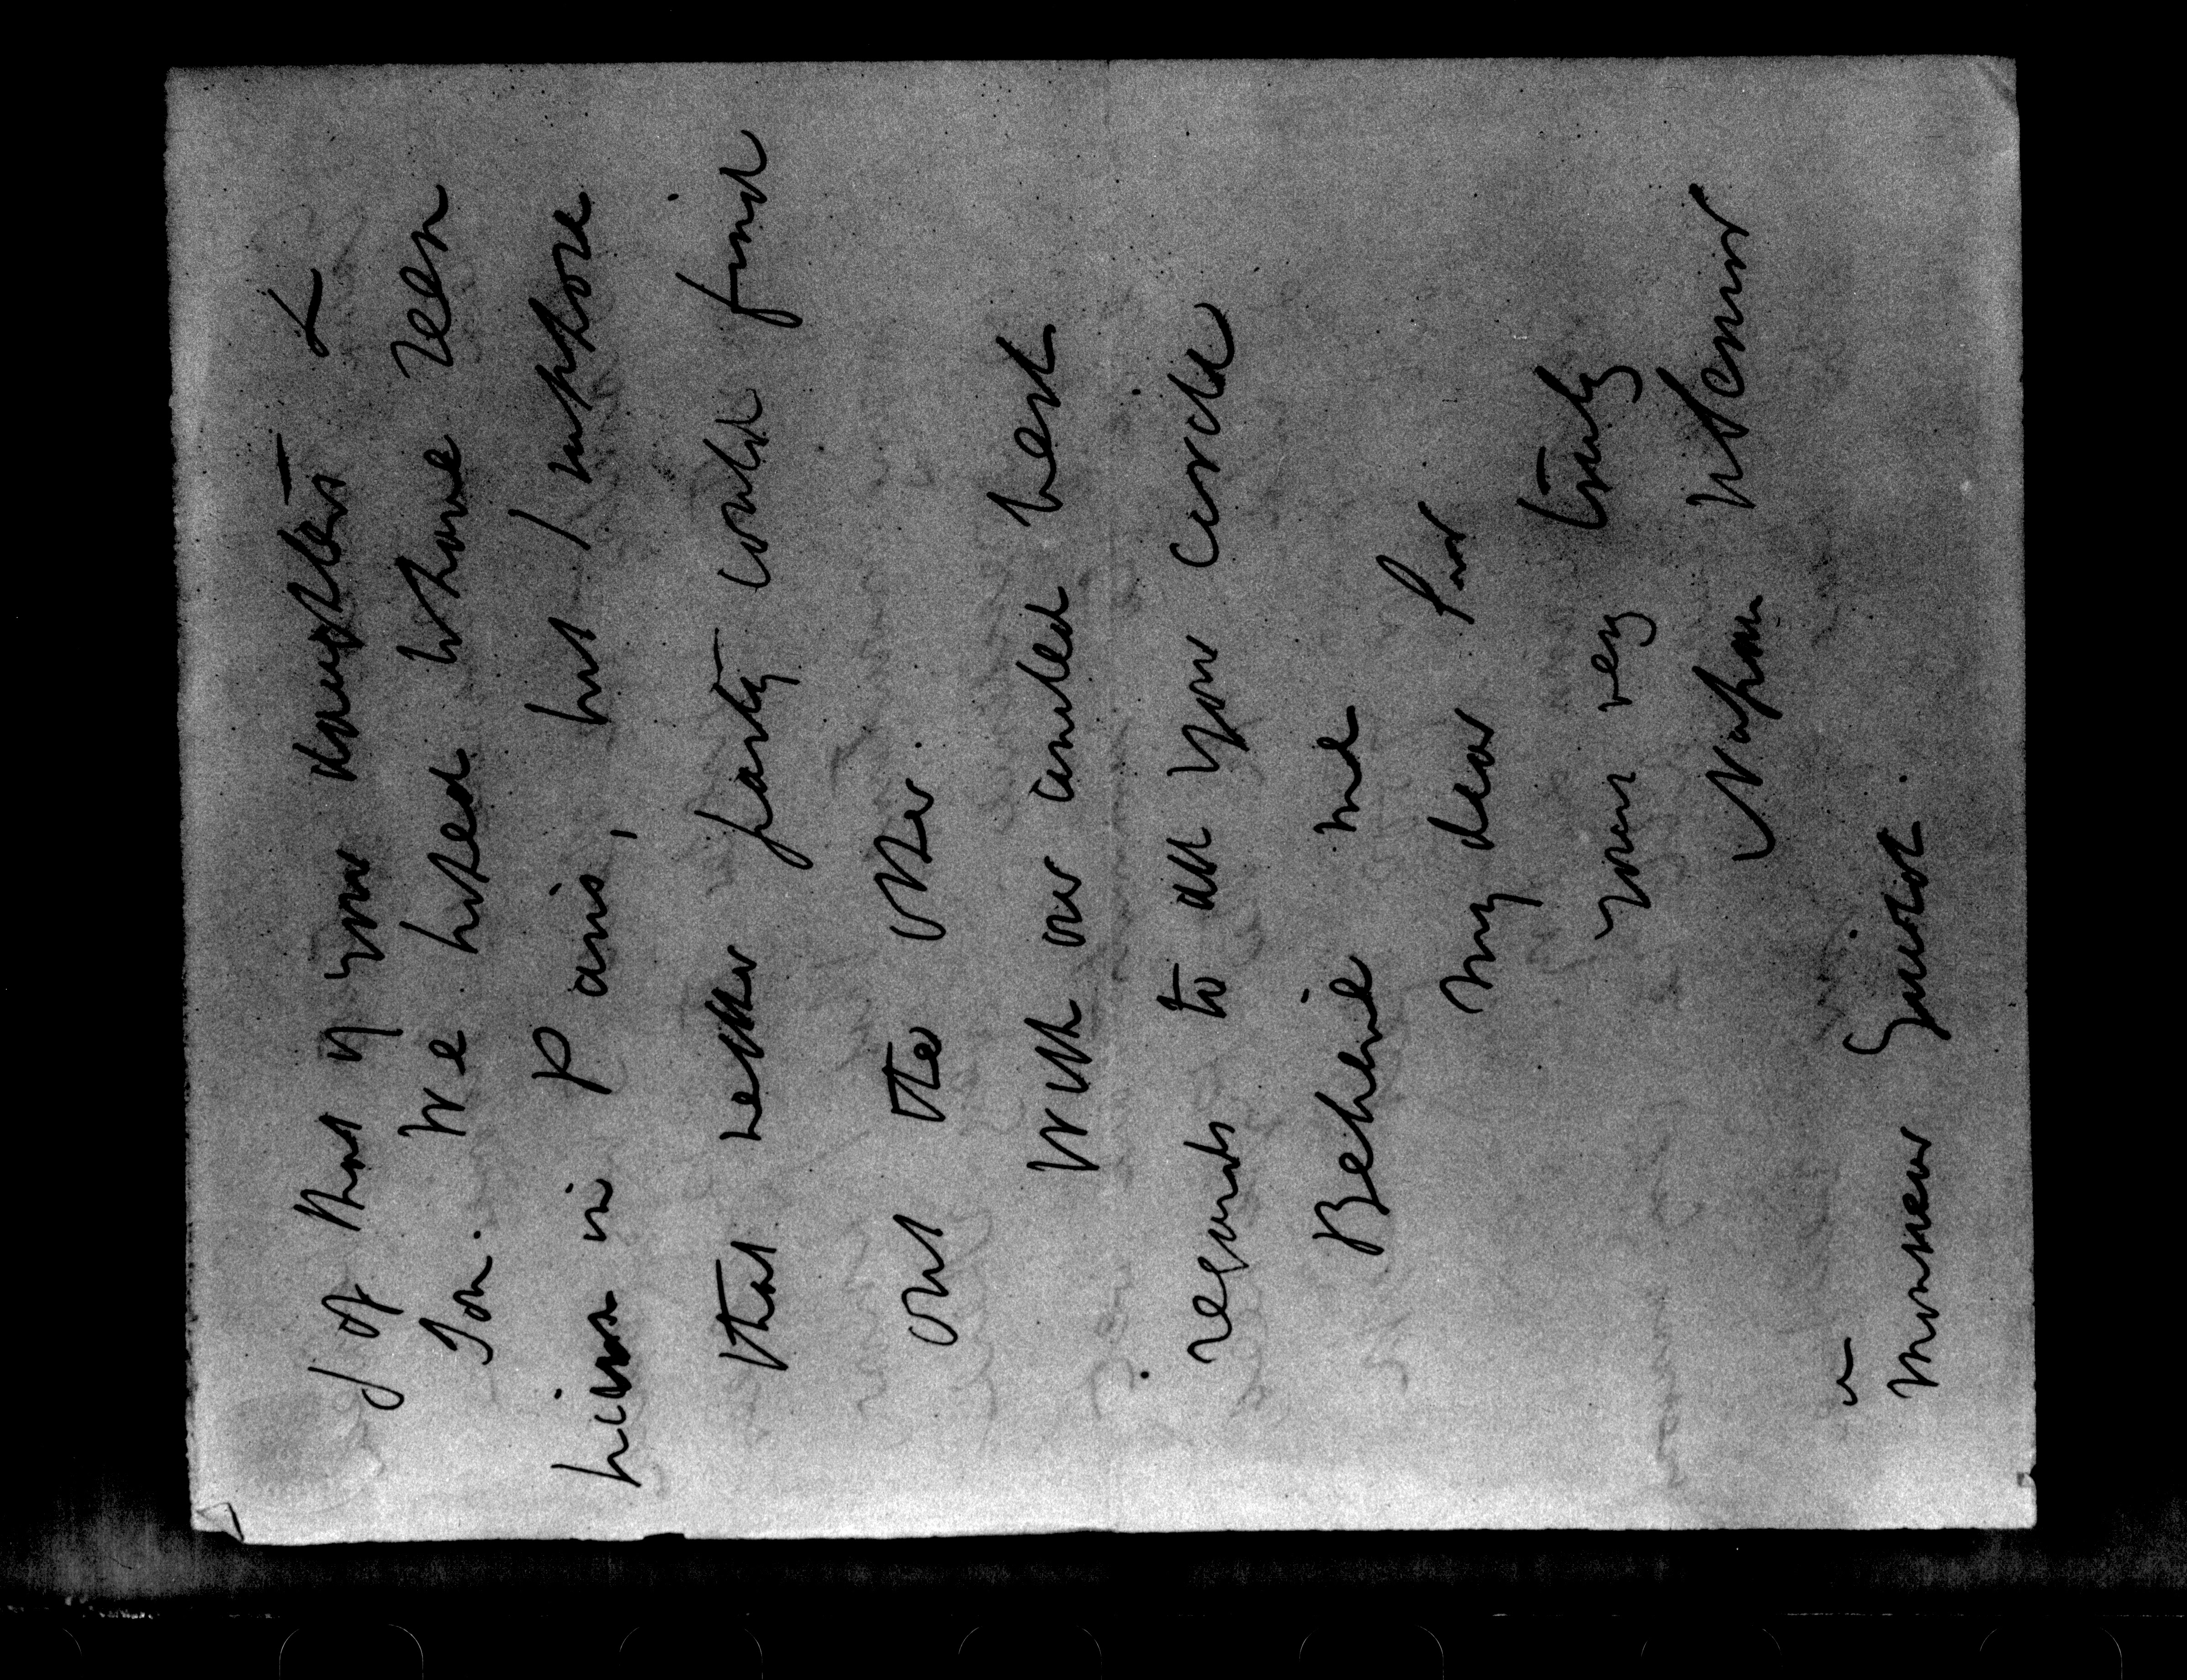 & of that of your daughters &
Son. We hoped to have seen
him in Paris, but I suppose
that neither party could find
out the other.
With our united best
regards to all your circle
Believe me
My dear Sir
yours very truly
Nassau W Senior
à
Monsieur Guizot.